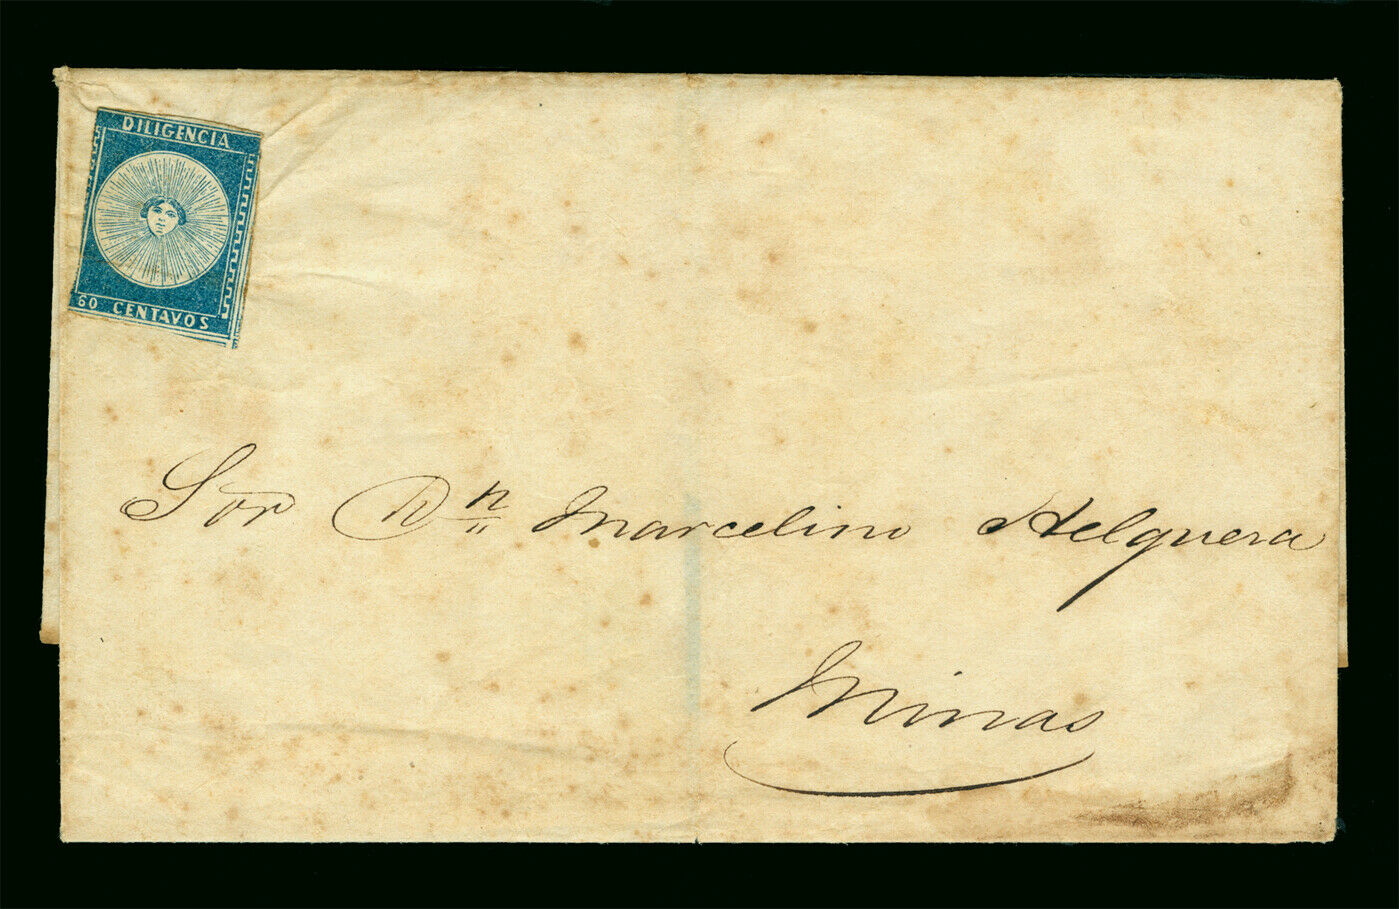 DILIGENCIA
60 CENTAVOS
Sor Dn Marcelino Helguera
Minas